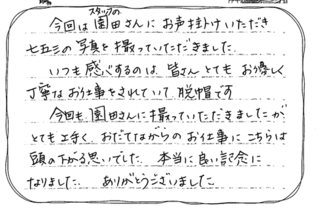 スタッフの
今回は園田さんにお声掛けいただき
七五三の写真を撮っていただきました。
いつも感心するのは、皆さんとてもお優しく
丁寧なお仕事をされていて、脱帽です
今回も園田さんに撮っていただきましたが
とても上手く、おだてながらのお仕事にこちらは
頭の下がる思いでした。本当に良い記念に
なりました。ありがとうございました。